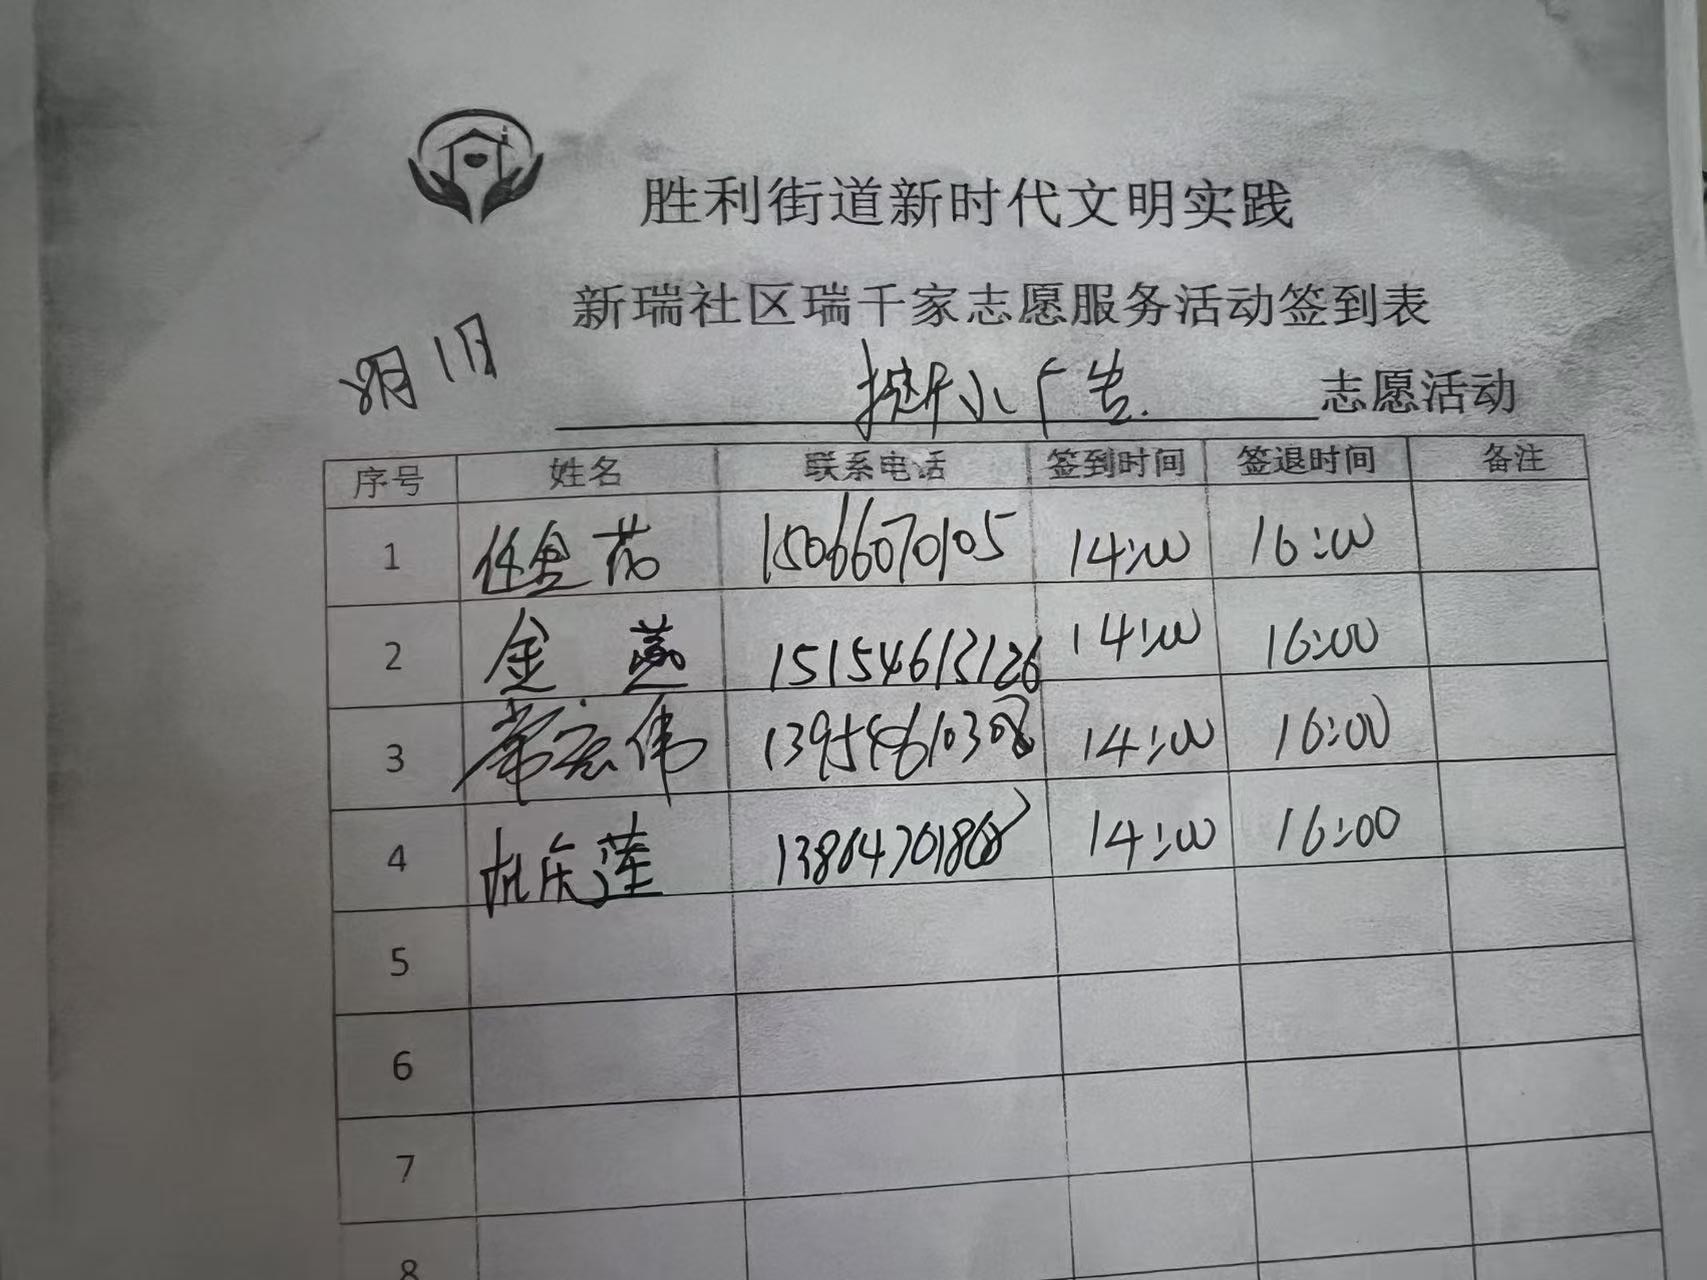 胜利街道新时代文明实践
新瑞社区瑞千家志愿服务活动签到表
8月1日
小广告 志愿活动
序号 姓名 联系电话 签到时间 签退时间 备注
1 任金花 15066070105 14:00 16:00
2 金燕 15154613126 14:00 16:00
3 常宏伟 13954610308 14:00 16:00
4 莲 14:00 16:00
5
6
7
8